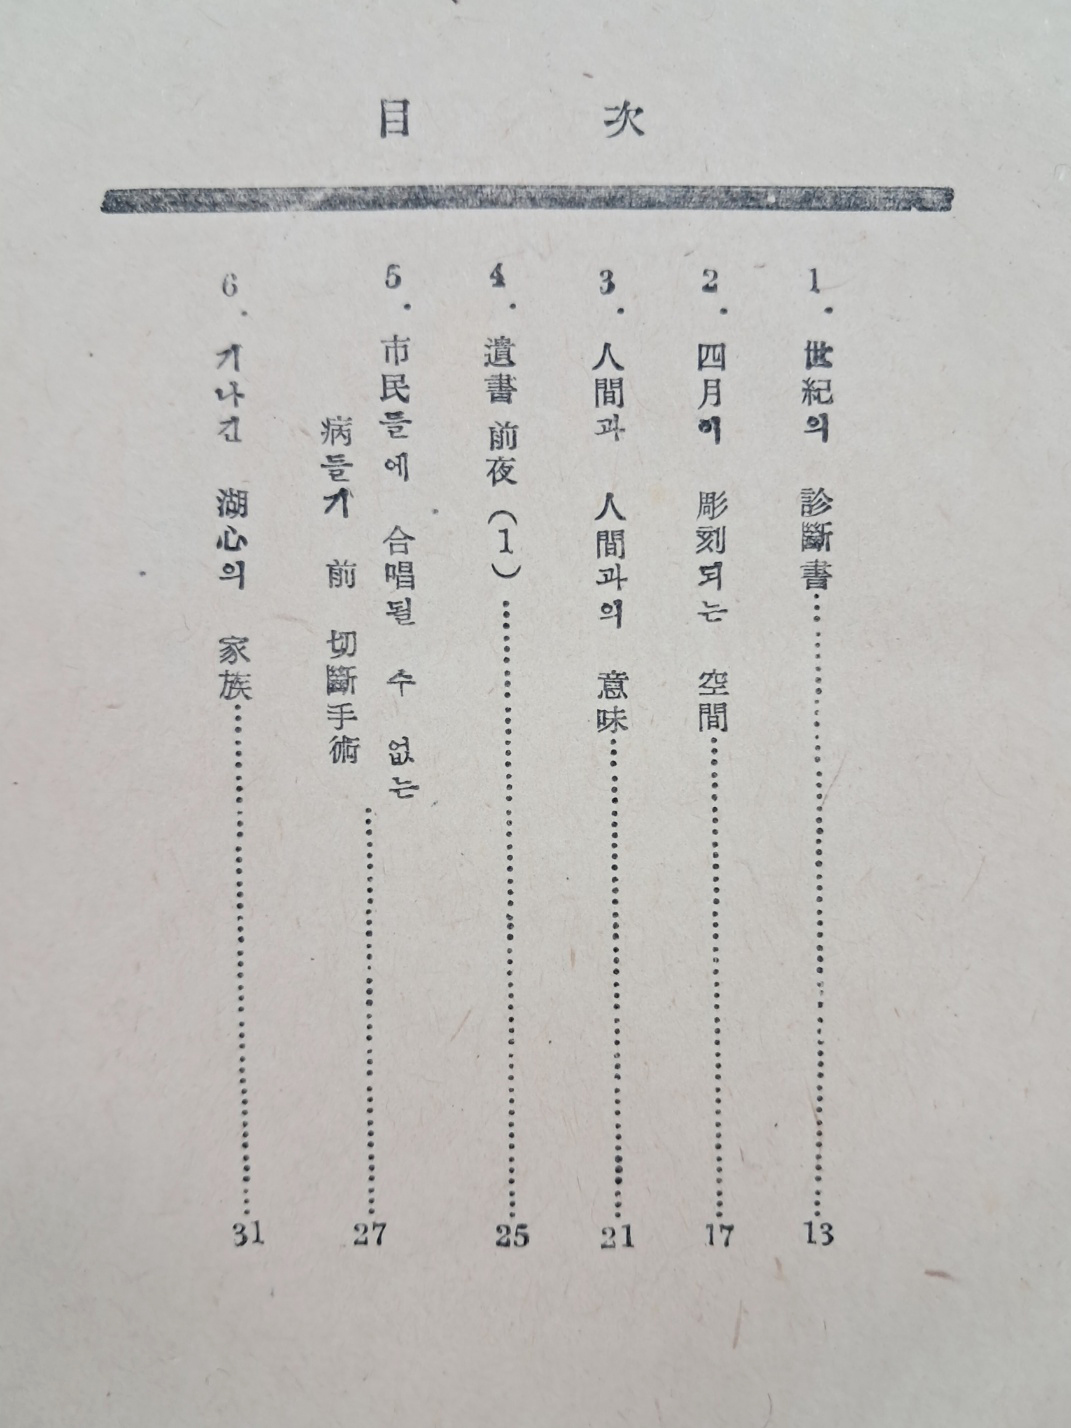 目 次
1. 世紀의 診斷書……13
2. 四月이 彫刻되는 空間……17
3. 人間과 人間과의 意味……21
4. 遺書 前夜(1)……25
5. 市民들에 合唱될 수 없는
病들기 前 切斷手術……27
6. 湖心의 家族……31